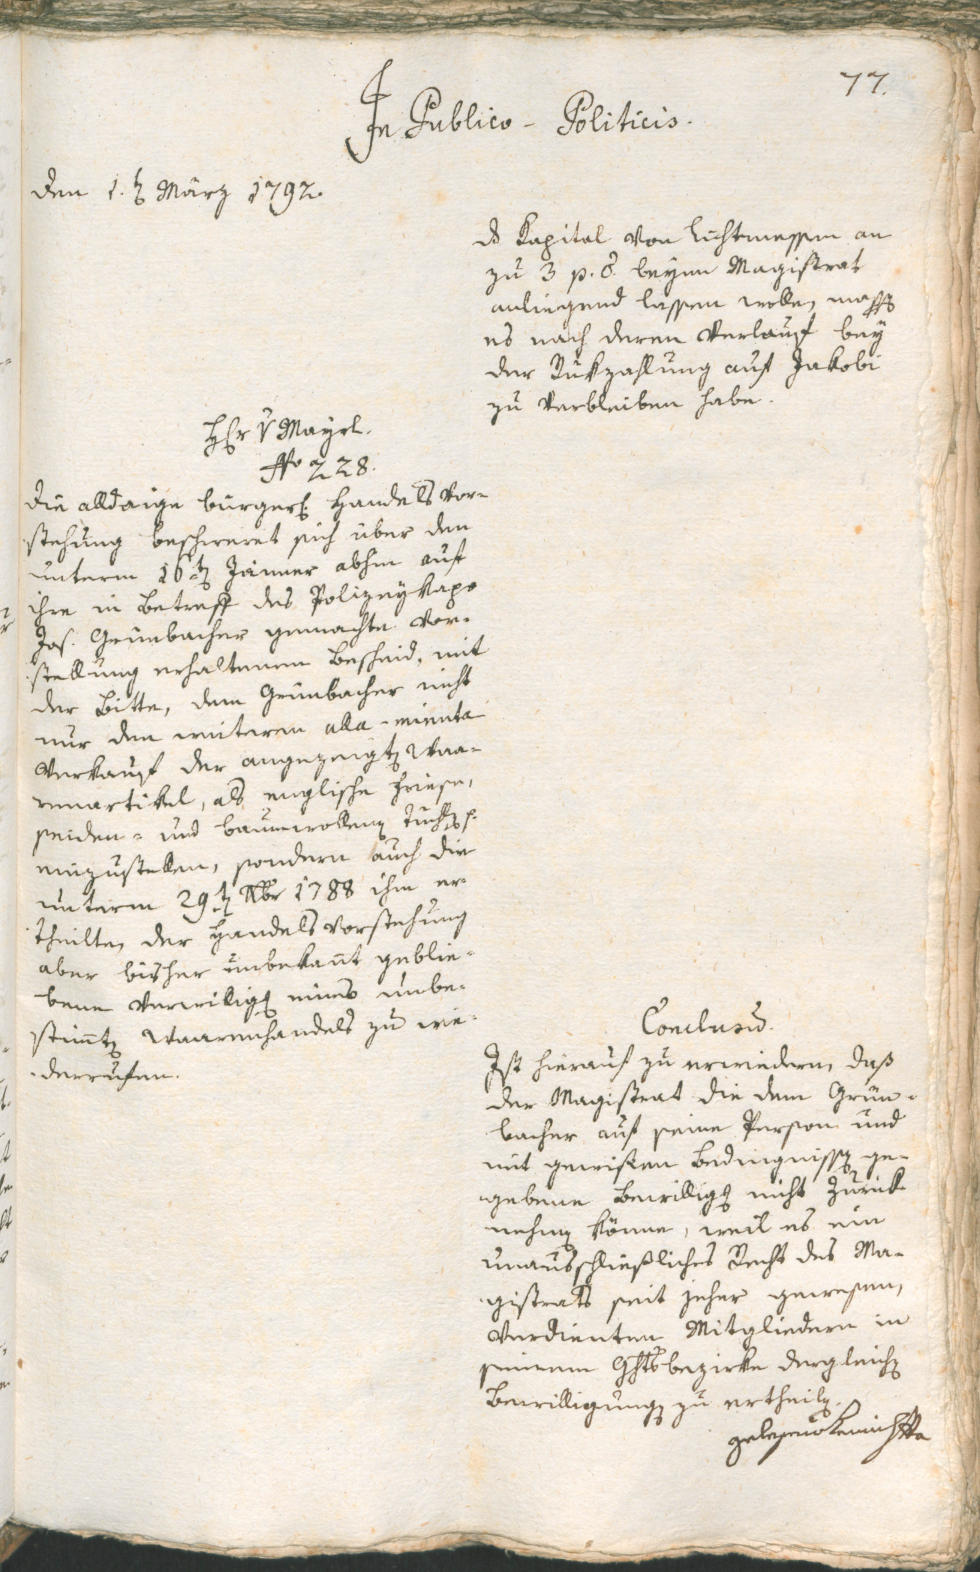 77.
In Publico - Politicis.
den 1.t März 1792.
ds Kapital von Lichtmessen an
zu 3 p. C. beym Magistrat
anliegend lassen wolle,
es nach deren Verlauf bey
der Rükzahlung auf Jakobi
zu verbleiben habe.
Hr v Mayrl.
No 228.
Die alldaige bürgerl Handelsvor-
stehung beschweret sich über den
unterm 10t Jänner abhin auf
ihre in Betreff des Polizeykapo
Jos. Grünbacher gemachte Vor-
stellung erhaltenen Bescheid, mit
der Bitte, dem Grünbacher nicht
nur den weiteren alla-minuta
Verkauf der angezeigt Waa-
renartikel, als englische Friese,
seiden- und baumwollen Tüchl p.
einzustellen, sondern auch die
unterm 29t 1788 ihm er-
theilte, der Handelsvorstehung
aber bisher unbekant geblie-
bene Verwillig eines unbe-
stimt Waarenhandels zu wie-
derrufen.
Conclusum.
Ist hierauf zu erwiedern, daß
der Magistrat die dem Grün-
bacher auf seine Person und
mit gewissen Bedingniss ge-
gebene Bewillig nicht zurük
nehm könne, weil es ein
unausschließliches Recht des Ma-
gistrats seit jeher gewesen,
verdienten Mitgliedern in
seinem Ghtsbezirke dergleich
Bewilligung zu ertheil.
gelesen